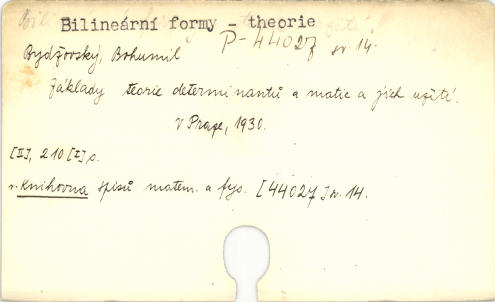 Bilineární formy - theorie
P-44027 sv. 14.
Bydžovský, Bohumil
Základy teorie determinantů a matic a jich užití.
V Praze, 1930.
[II], 210 [I] s.
v. Knihovna spisů matem. a fys. [44027] sv. 14.